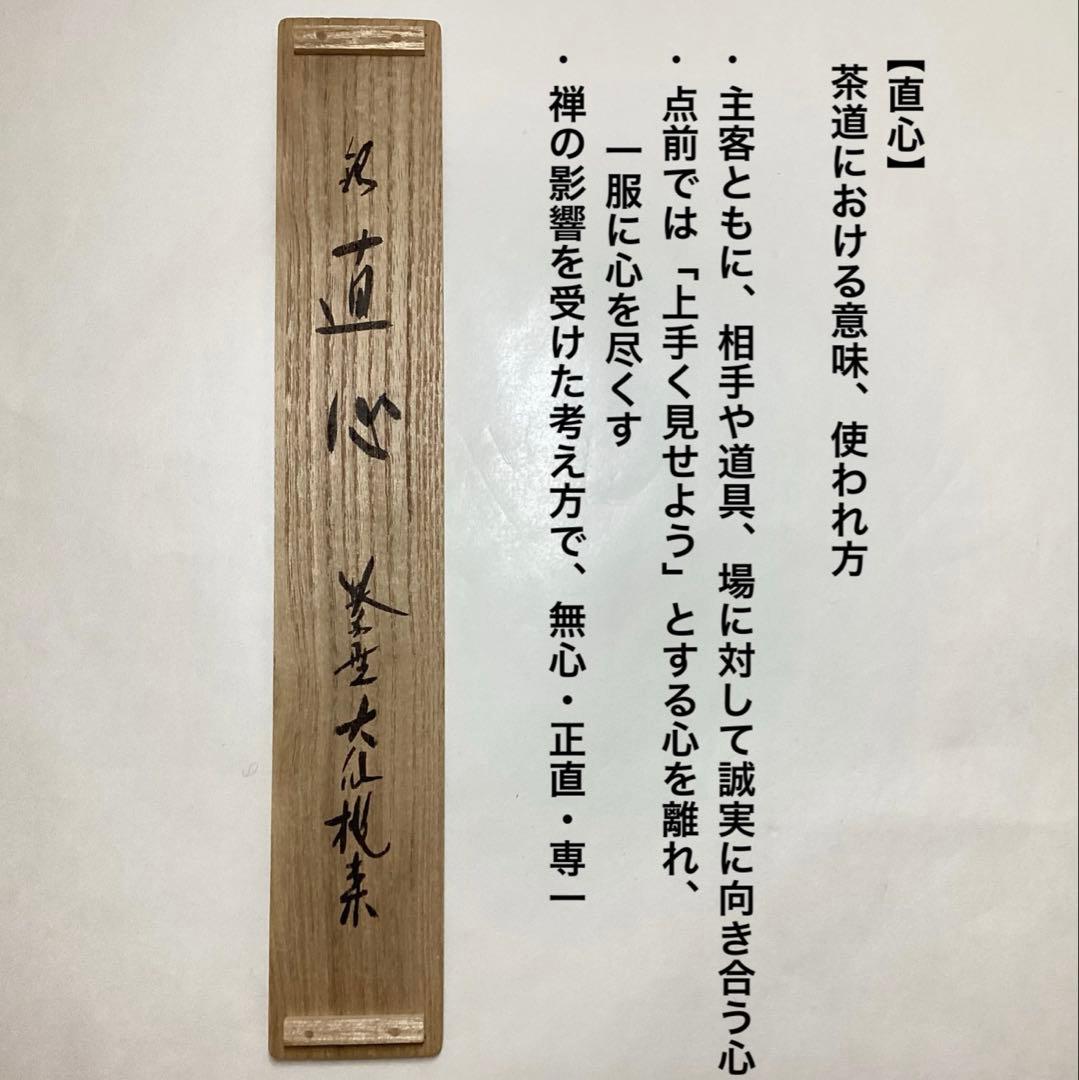 【直心】
茶道における意味、使われ方
・主客ともに、相手や道具、場に対して誠実に向き合う心
・点前では「上手く見せよう」とする心を離れ、
一服に心を尽くす
・禅の影響を受けた考え方で、無心・正直・専一
銘 直心 紫野大仙桃林